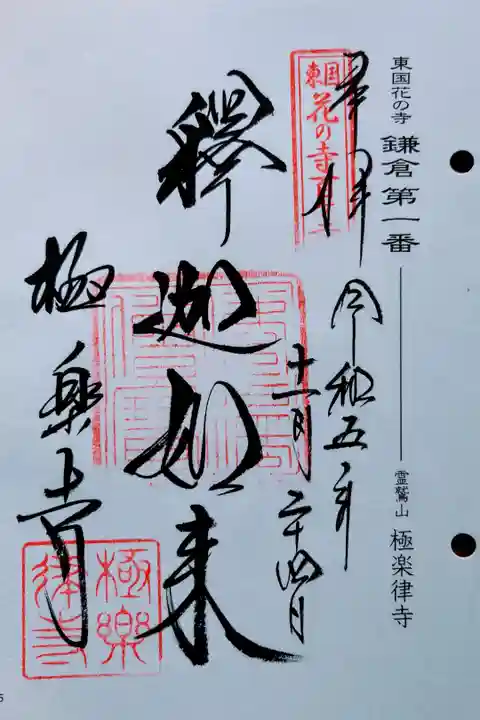 東国花の寺 鎌倉第一番
霊鷲山 極楽律寺
東国
花の寺百ヶ寺
奉拝
令和五年
十一月二十四日
釋迦如来
極楽寺
極樂
律寺
5